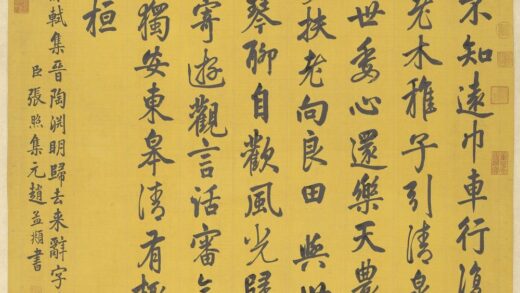 不知遠巾車行復
老木稚子引清泉
世委心還樂天農
扶老向良田與世
琴聊自歡風光歸
寄遊觀言話審
獨安東皋清有
桓
軾集晉陶淵明歸去来辭字
臣張照集元趙孟頫書